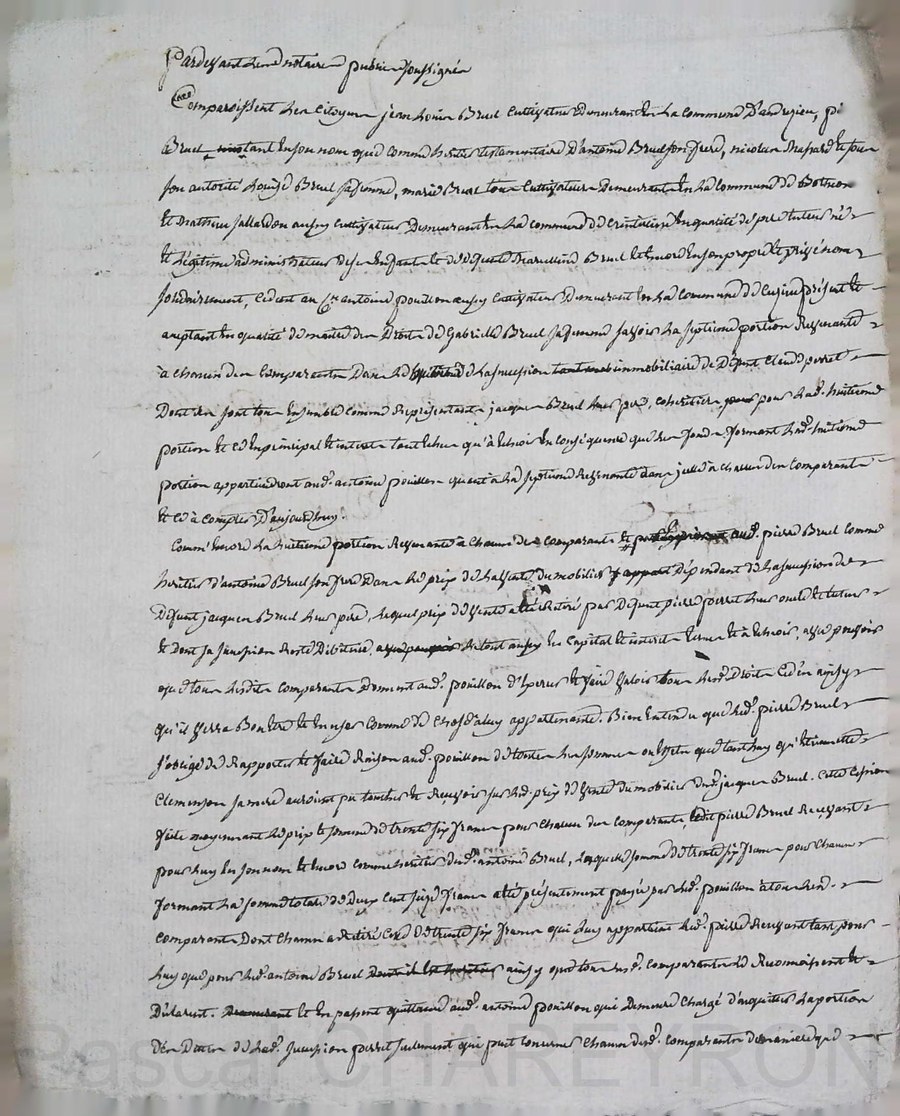 Pardevant le notaire public soussigné
Comparoissent les citoyens jean louis Bruel Cultivateur demeurant en la commune d'andrezieu, pi
Bruel tant en son nom que comme heritier testamentaire d'antoine Bruel son frere, nicolas
son autorité louise Bruel sa femme, marie Bruel tous Cultivateurs demeurants en la commune de Bothéon
et mathieu jallardon aussy cultivateur demeurant en la commune de en qualité de pere tuteur né
et légitime administrateur de ses enfants et de défunte marcelline Bruel et encore en son propre et privé nom
solidairement, cèdent au C.en antoine pouillon aussy cultivateur demeurant en la commune de présent et
acceptant en qualité de maitre des Droits de Gabrielle Bruel sa femme sçavoir la septieme portion Revenante
à chacun des comparants Dans la succession immobiliaire de Défunt Claude perret
Dont ils sont tous ensemble comme Représentants jacques Bruel leur pere, coheritier pour lad. huitieme
portion et ce en principal et interets tant échus qu'à échoir en conséquence que les fonds formant lad. huitieme
portion appartiendront aud. antoine pouillon quant à la septieme Revenante dans icelle à chacun des comparants
et ce à compter d'aujourd'huy.
Comm' encore la huitieme portion Revenante à chacun des comparants et aud. pierre Bruel comme
heritier d'antoine Bruel son frere Dans le prix de la vente du mobilier Dépendant de la succession de
Défunt jacques Bruel leur pere, lequel prix de vente a été Retiré par Défunt pierre perret leur oncle et tuteur
et dont sa succession Reste Débitrice, le tout aussy en capital et interets échus et à échoir, avec pouvoir
que tous lesdits comparants Donnent aud. pouillon d'exercer et faire valoir tous lesd. Droits cédés ainsy
qu'il verra Bon être et en user comme de chose à luy appartenante. Bien entendu que led. pierre Bruel
s'oblige de Rapporter et faire Raison aud. pouillon de toutes les sommes ou effets que tant luy qu'étiennette
Clemençon sa mere auroient pu toucher et Recevoir sur led. prix de vente du mobilier dud. jacques Bruel. Cette cession
faite moyennant le prix et somme de trente six francs pour chacun des comparants, ledit pierre Bruel Recevant
pour luy en son nom et encore comme heritier dud. antoine Bruel, lesquelles sommes de trente six francs pour chacun
formant la somme totale de Deux cent seize francs a été présentement payée par led. pouillon à tous lesd.
comparants Dont chacun a Retiré celle de trente six francs qui luy appartient led. pierre Recevant tant pour
luy que pour led. antoine Bruel ainsy que tous lesd. comparants le Reconnoissent et
Déclarent. et en passent quittance aud. antoine pouillon qui Demeure chargé d'acquitter la portion
des Dettes de lad. succession perret seulement qui peut concerner chacun desd. comparants de maniere que
Pascal CHAREYRON